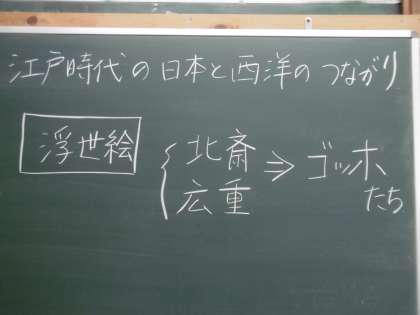 江戸時代の日本と西洋のつながり
浮世絵 { 北斎 ⇒ ゴッホ
広重 たち